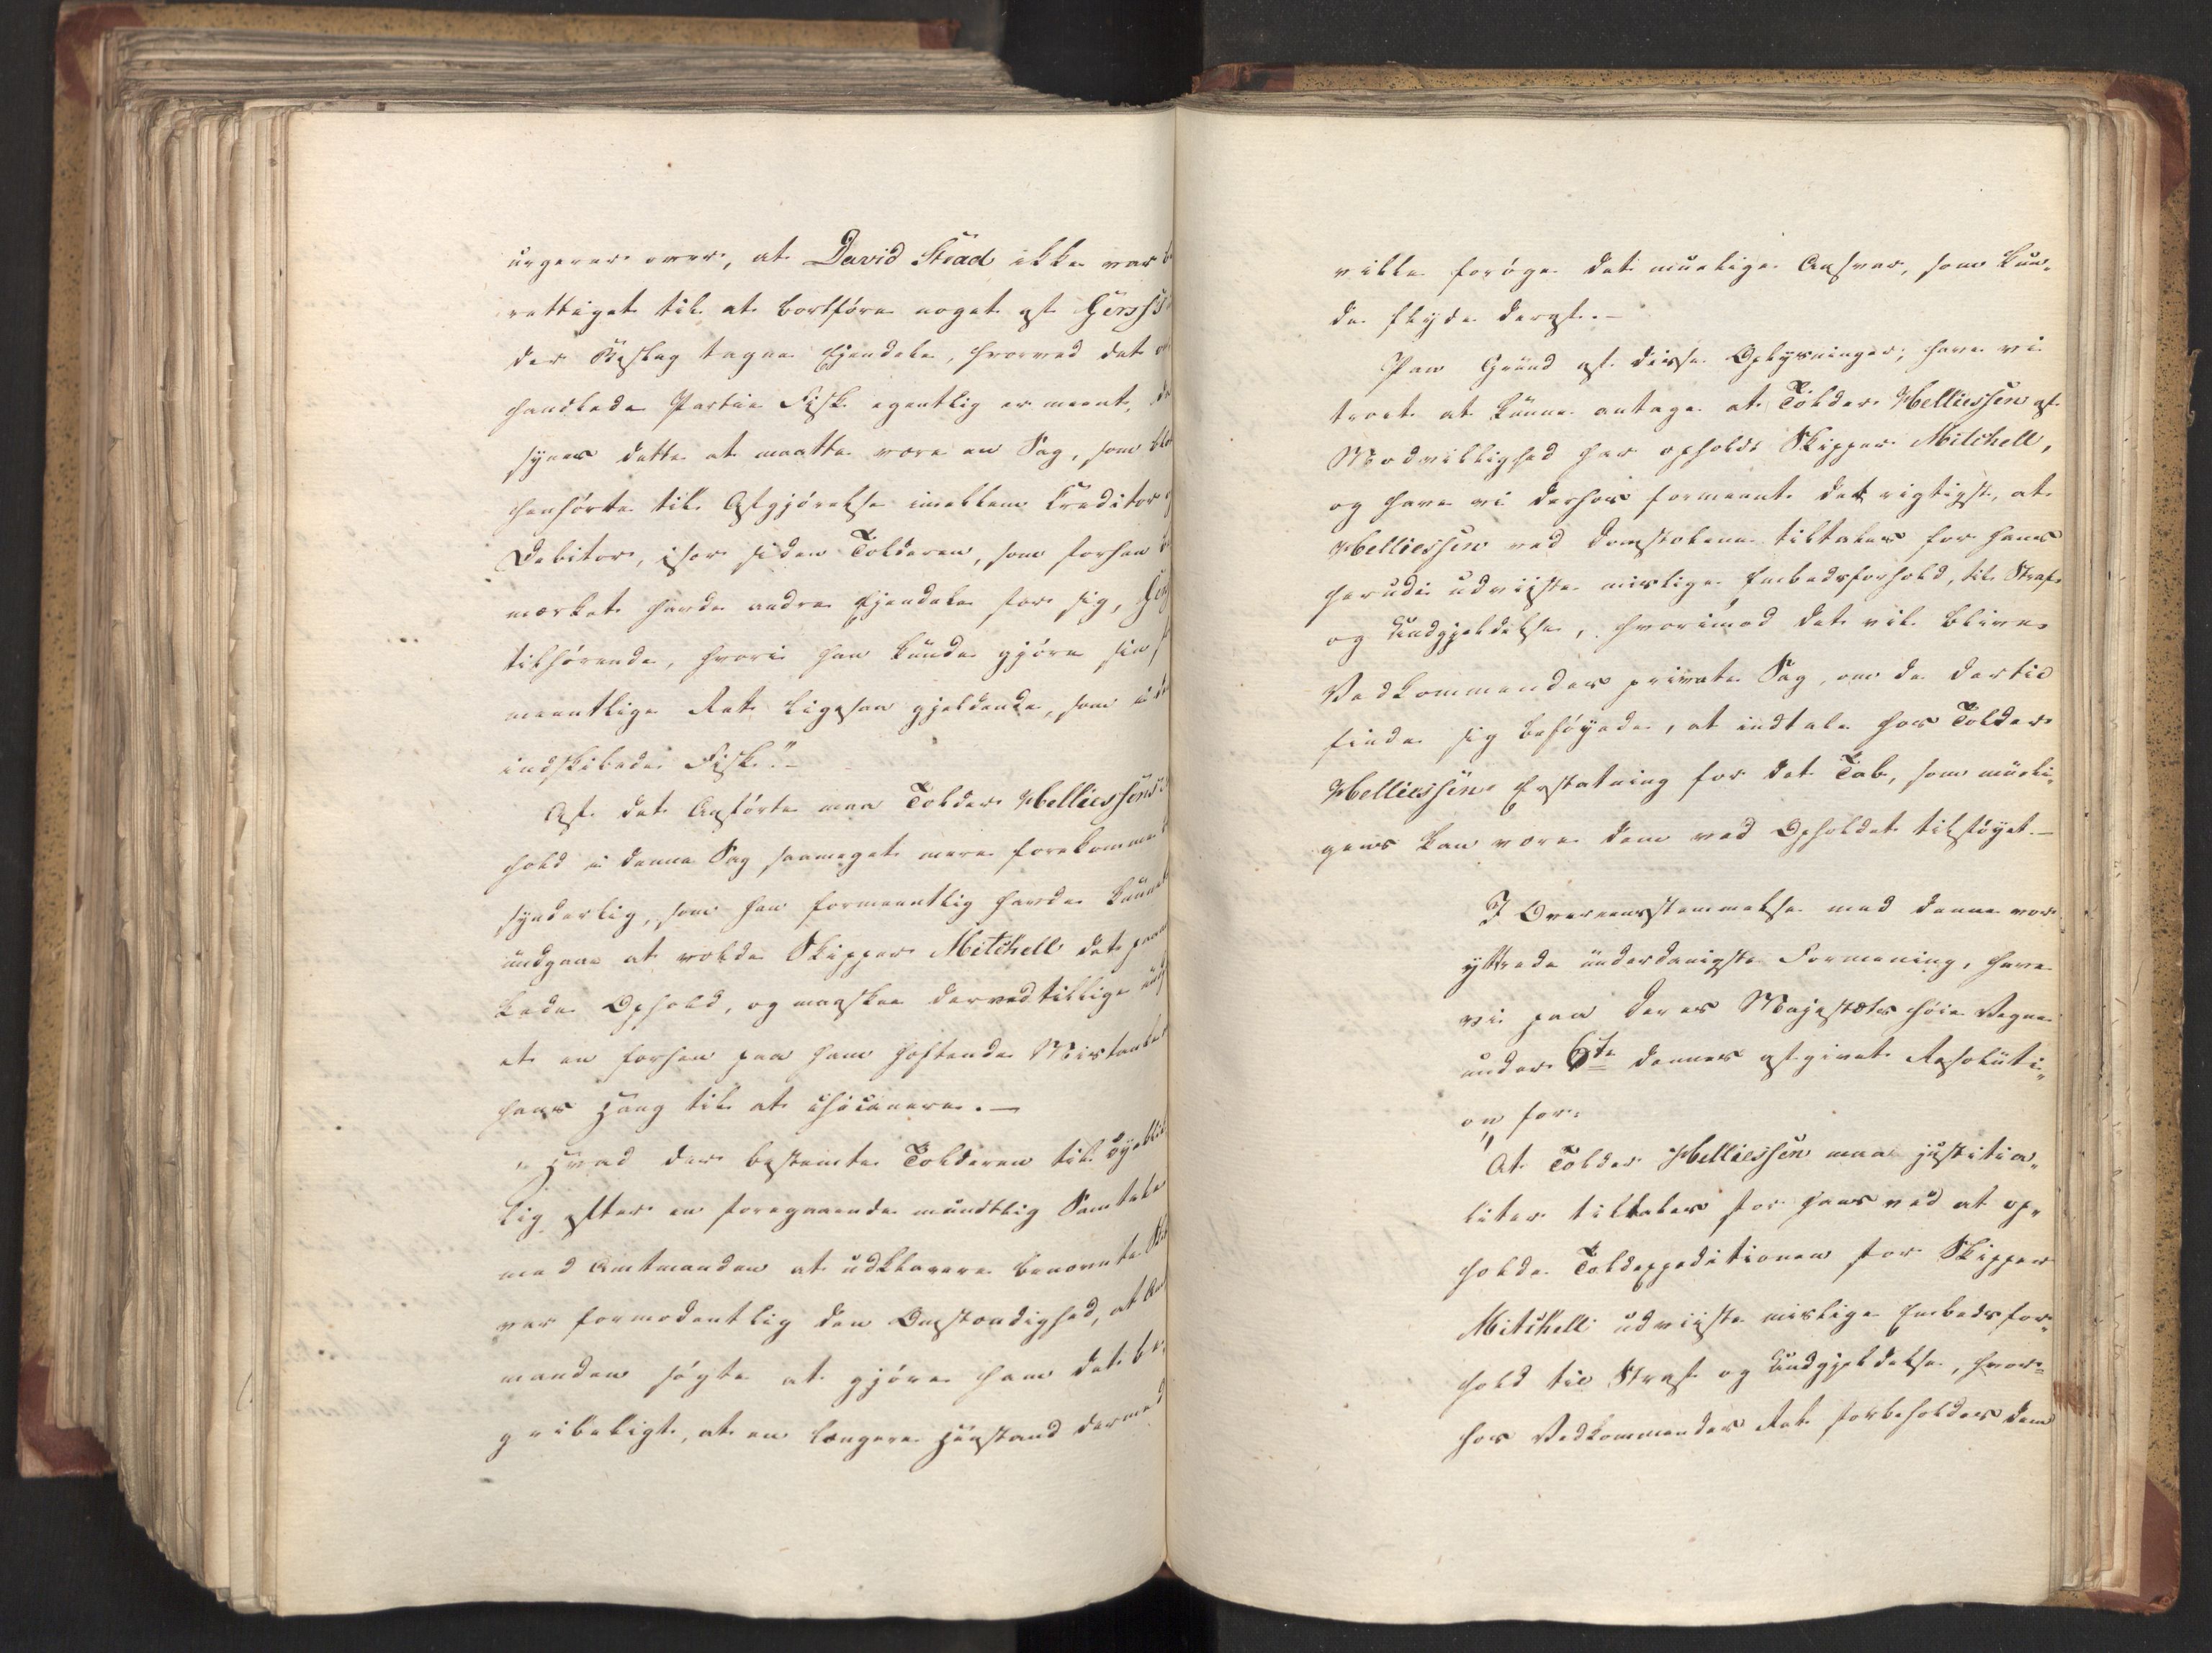 urgerer over, at David Stead ikke var
rettiget til at bortføre noget af
der Beslag tagne Ejendele, hvorved det
handlede Partie Fisk egentlig er meent,
synes dette at maatte være en Sag, som
henhørte til Afgjørelse imellem Creditor
Debitor, især siden Tolderen, som forhen
mærket havde andre Ejendele for sig,
tilhørende, hvori han kunde gjøre sin
meentlige Ret ligesaa gjeldende, som i
indskibede Fisk."-
Af det Anførte maa Tolder Helliessens
hold i denne Sag saameget mere forekomme
synderlig, som han formeentlig havde kunnet
undgaae at volde Skipper Mitchell det
kede Ophold, og maaskee derved tillige
et en forhen paa ham heftende Mistanke
hans Hang til at chicanere.-
"Hvad der bestemte Tolderen til øyeblik
lig efter en foregaaende mundtlig Samtale
med Amtmanden at udklarere benævnte
var formodentlig den Omstændighed, at
manden søgte at gjøre ham det be
gribeligt, at en længere Henstand dermed
ville forøge det muelige Ansvar, som kun-
de flyde deraf.-
Paa Grund af disse Oplysninger, have vi
troet at kunne antage at Tolder Helliessen af
Modvillighed har opholdt Skipper Mitchell,
og have vi derhos formeent det rigtigst, at
Helliessen ved Domstolene tiltales for hans
herudi udviiste mislige Embedsforhold, til Straf
og Undgjeldelse, hvorimod det vil blive
Vedkommendes private Sag, om de dertil
finde sig beføyede, at indtale hos Tolder
Helliessen Erstatning for det Tab, som mueli-
gens kan være dem ved Opholdet tilføyet.-
I Overeensstemmelse med denne vor
yttrede underdanigste Formening, have
vi paa Deres Majestæts høie Vegne
under 6te dennes afgivet Resoluti-
on for:
"At Tolder Helliessen maa justitia-
liter tiltales for hans ved at op-
holde Toldexpeditionen for Skipper
Mitchell udviiste mislige Embedsfor-
hold til Straf og Undgjeldelse, hvor-
hos Vedkommendes Ret forbeholdes dem